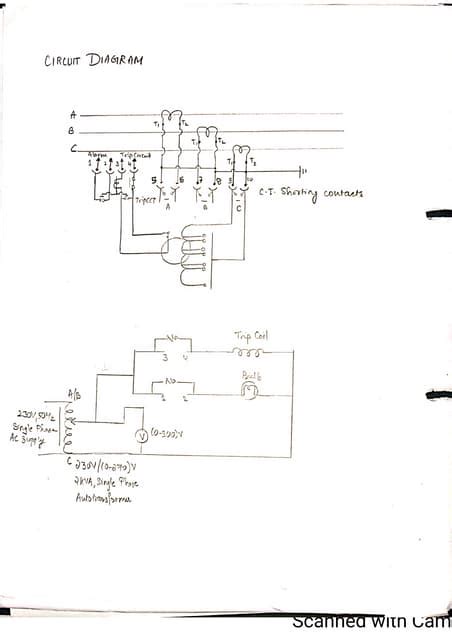 CIRCUIT DIAGRAM
A
B
C
T1 T2
T1 T2
T1 T2
Alarm Trip Circuit
1 2 3 4
5 6 7 8 9 10
A B C
C.T. Shorting contacts
TripCCT
No
3 4
Trip Coil
No
1 2
Bulb
A/B
230V, 50Hz
Single Phase
AC Supply
V (0-300)V
C
230V/(0-270)V
2kVA, Single Phase
Autotransformer
Scanned with Cam